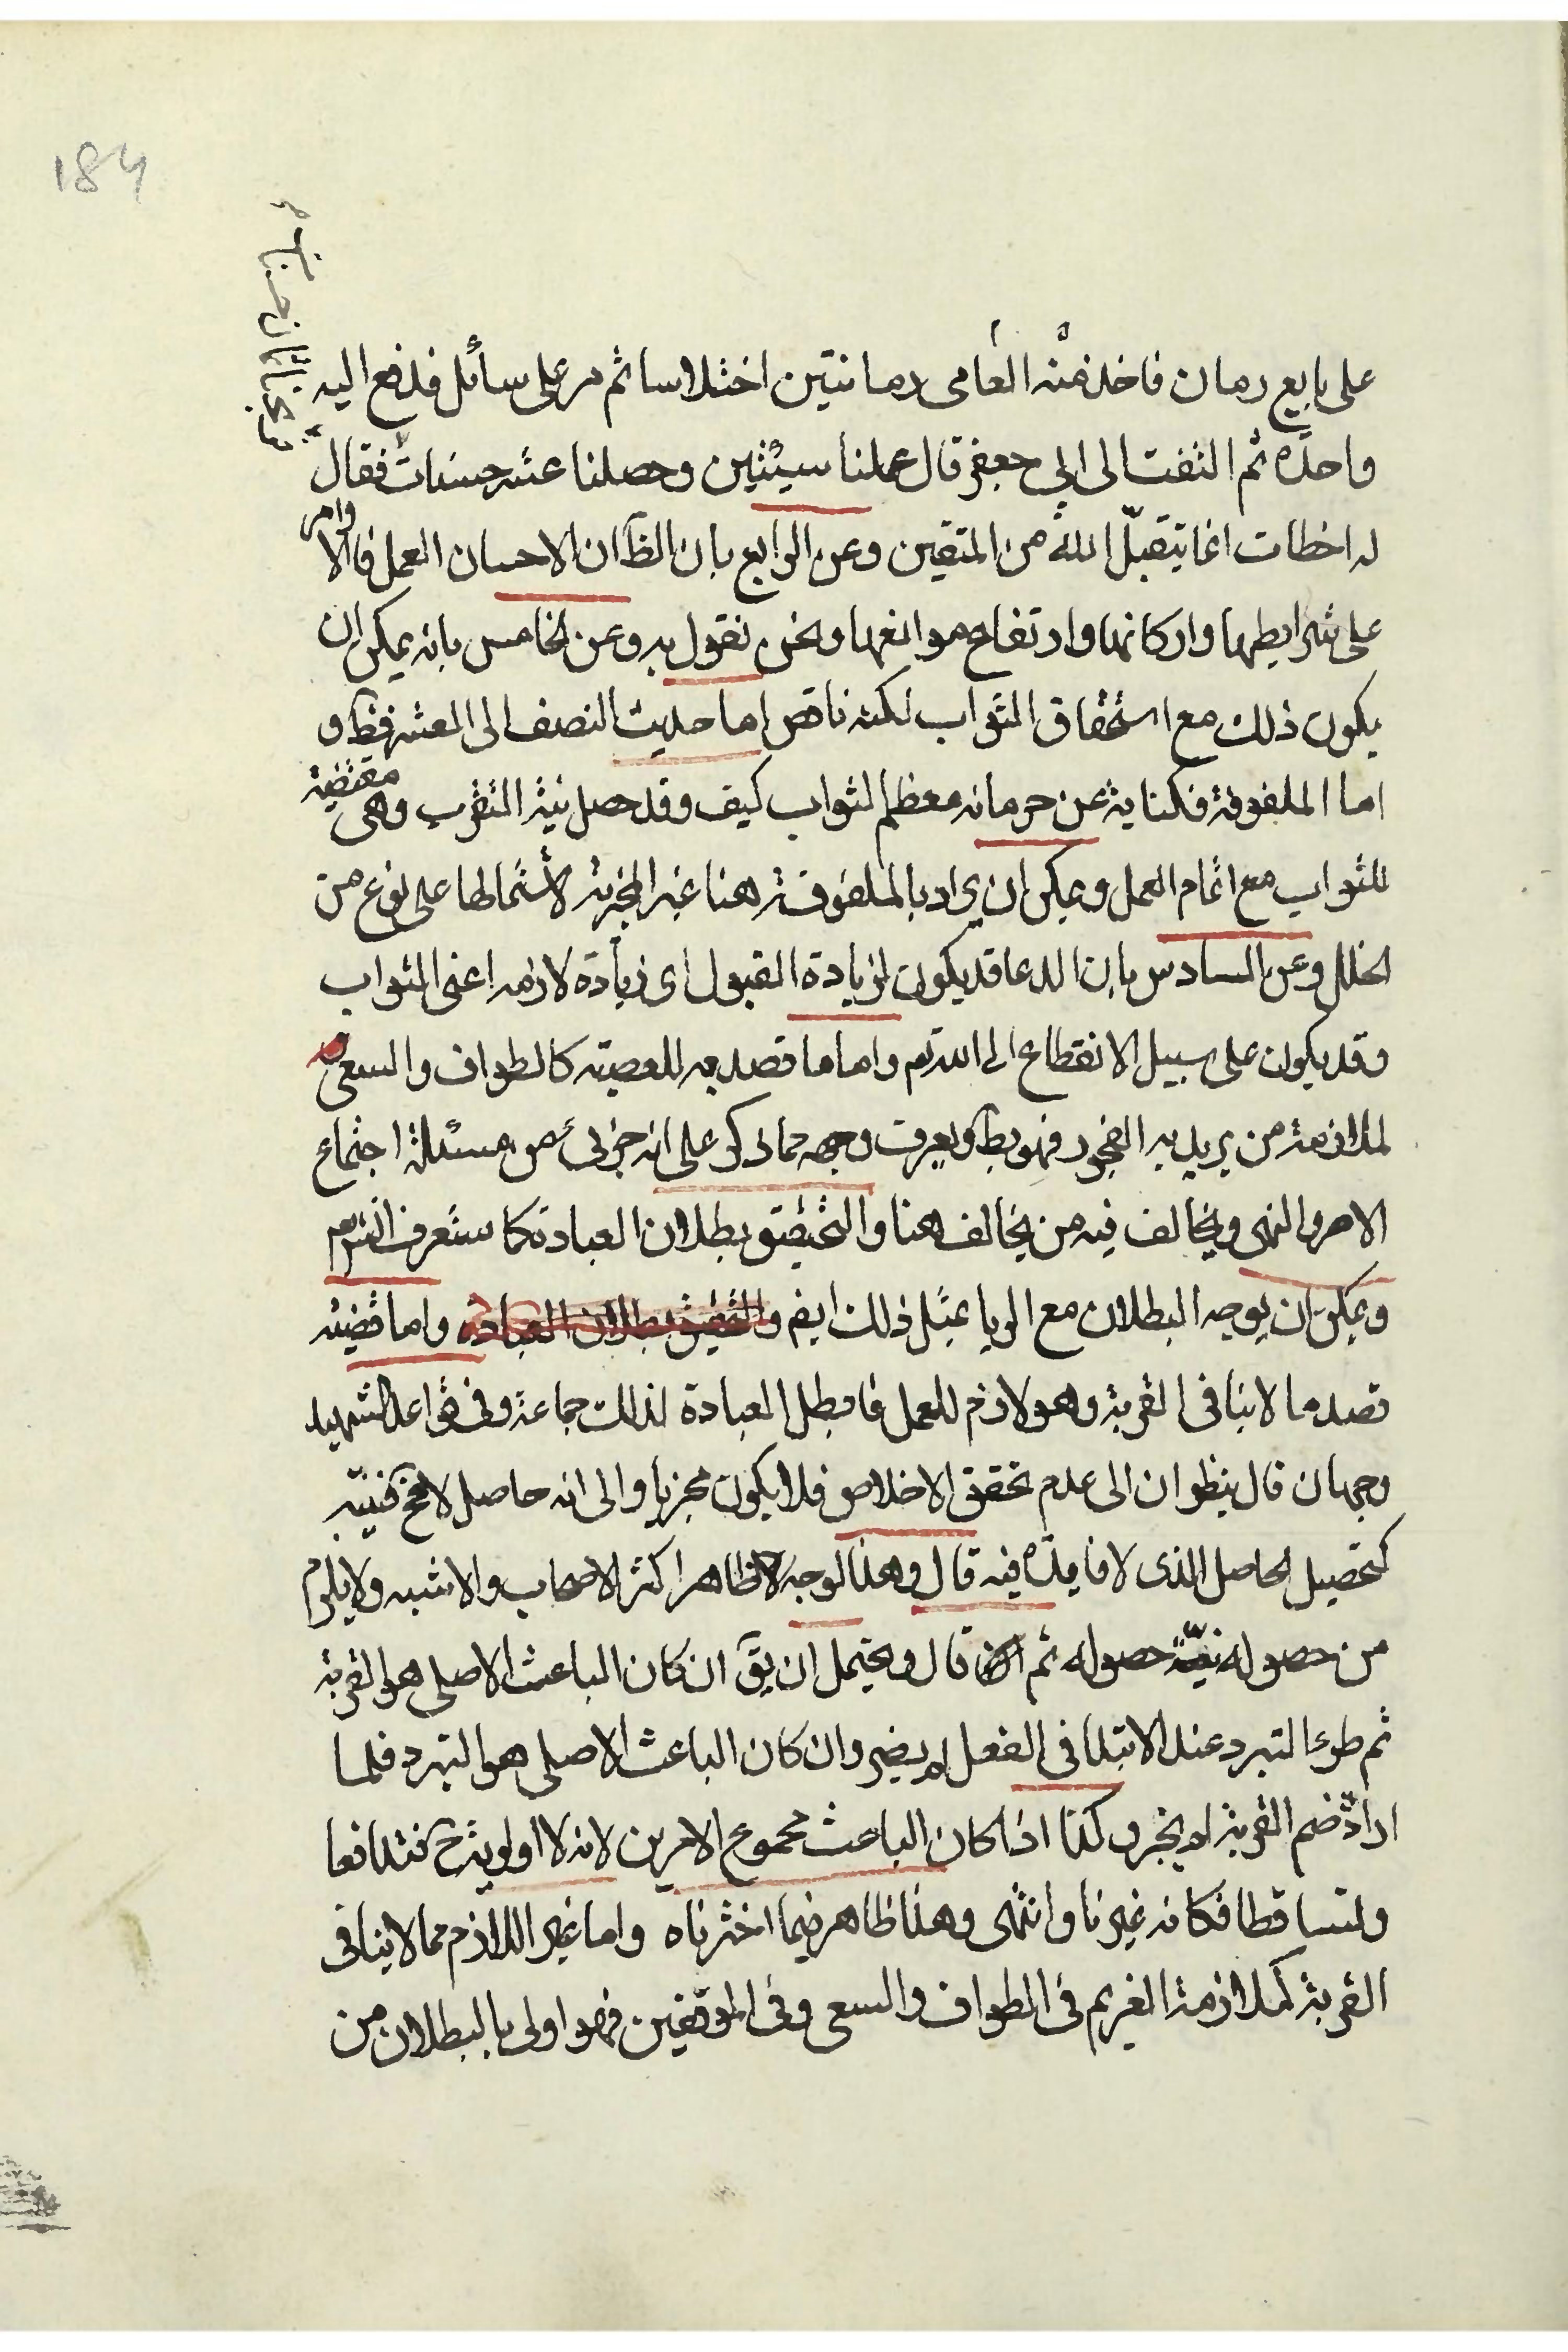 184
على بايع رمان فاخذ منه العامى رمانتين اختلاسا ثم مر على سائل فدفع اليه
واحدة ثم التفت الى ابي جعفر قال عملنا سيئتين وحصلنا عشر حسنات فقال
له اخطات انما يتقبل الله من المتقين وعن الرابع بان الظ ان الاحسان العمل فالاوامر
على شرايطها واركانها وارتفاع موانعها ونحن نقول به وعن الخامس بانه يمكن ان
يكون ذلك مع استحقاق الثواب لكنه ناقص اما حديث النصف الى العشر فظ و
اما الملفوفة فكناية عن حرمانه معظم الثواب كيف وقد حصل نية التقرب وهى مقتضية
للثواب مع اتمام العمل ويمكن ان يراد بالملفوفة هنا غير المجزية لاشتمالها على نوع من
الخلل وعن السادس بان الدعا قد يكون لزيادة القبول اى زيادة لازمه اعنى الثواب
وقد يكون على سبيل الانقطاع الى الله تم واما ما قصد به المعصية كالطواف والسعى
لملازمة من يريد به الفجور فهو بط ويعرف وجهه مما ذكر على انه جزئى من مسئلة اجتماع
الامر والنهى ويخالف فيه من يخالف هنا والتحقيق بطلان العبادة كما ستعرف انش تم
ويمكن ان يوجه البطلان مع الريا بمثل ذلك ايض والتحقيق بطلان العبادة واما قضية
قصد ما لا ينافى القربة وهو لازم للعمل فابطل العبادة لذلك جماعة وفى قواعد الشهيد
وجهان قال ينظران الى عدم تحقق الاخلاص فلا يكون مجزيا والى انه حاصل لا مح فنيته
كتحصيل الحاصل الذى لا فايدة فيه قال وهذا الوجه ظاهر اكثر الاصحاب والاشبه ولا يلزم
من حصوله نية حصوله ثم قال ويحتمل ان يق ان كان الباعث الاصلى هو القربة
ثم طرء التبرد عند الابتدا فى الفعل لم يضر وان كان الباعث الاصلى هو التبرد فلما
اراد ضم القربة لم يجز وكذا اذا كان الباعث مجموع الامرين لانه لا اولوية ح فتدافعا
ولتساقطا فكانه غير ناو انتهى وهذا ظاهر فيما اخترناه واما غير اللازم مما لا ينافى
القربة كملازمة الغريم فى الطواف والسعى وفى الموقفين فهو اولى بالبطلان من